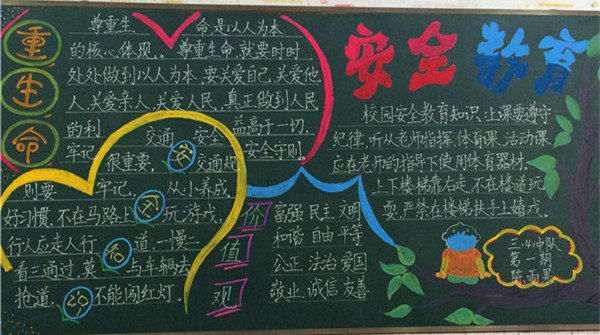 重
生
命
尊重生 命是以人为本
的核心体现。尊重生命,就要时时
处处做到以人为本,要关爱自己,关爱他
人,关爱亲人,关爱人民,真正做到人民
的利 益高于一切,
牢记 安全守则。
交通 安全
很重要, 交通规
则要 牢记, 从小养成
好习惯,不在马路上 玩游戏,
行人应走人行 道,一慢
看三通过,莫 与车辆去
抢道, 不能闯红灯。
安全教育
校园安全教育知识:上课要遵守
纪律,听从老师指挥,体育课,活动课
应在老师的指导下使用体育器材。
上下楼梯靠右走,不在楼道玩
耍,严禁在楼梯扶手上嬉戏。
价
值
观
富强 民主 文明
和谐 自由 平等
公正 法治 爱国
敬业 诚信 友善
三.4中队
第一期
陈雨果